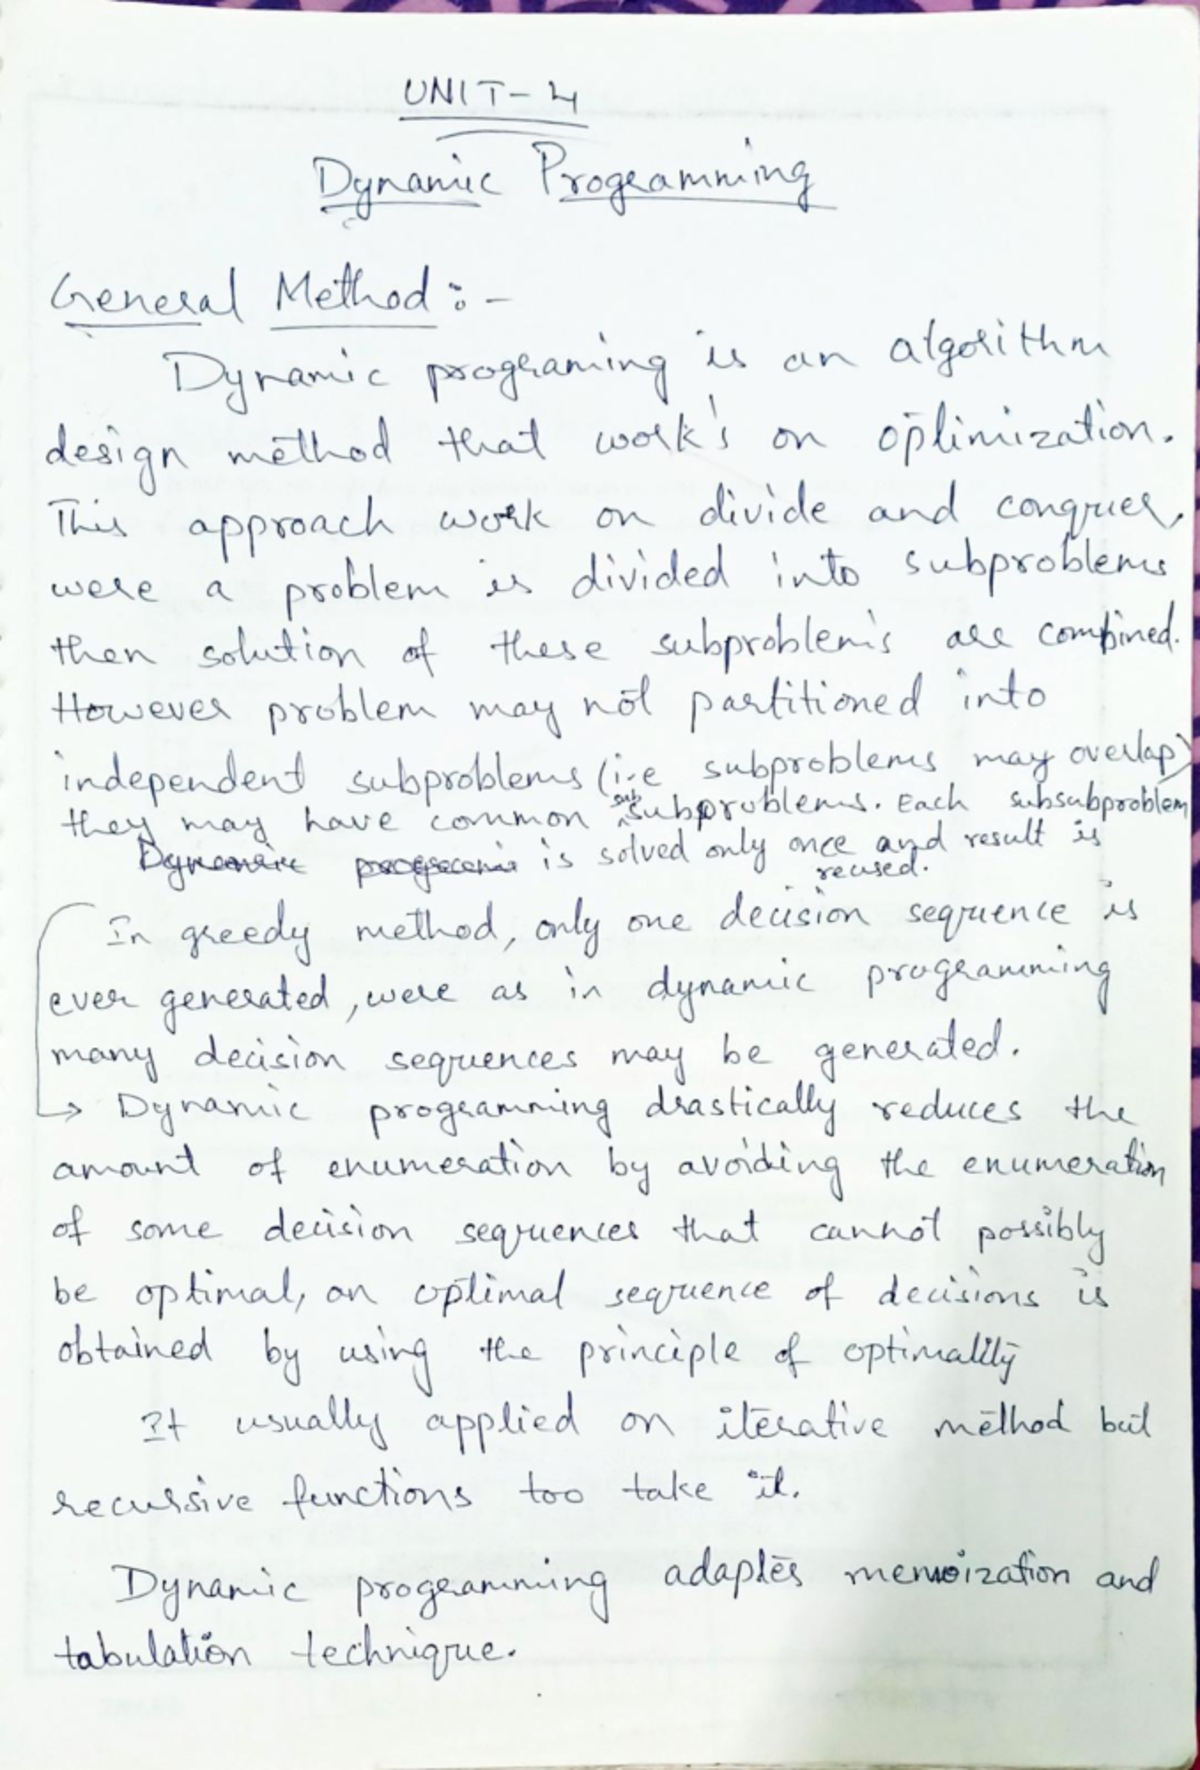 UNIT-4
Dynamic Programming
General Method :-
Dynamic programing is an algorithm
design method that work's on optimization.
This approach work on divide and conquer,
were a problem is divided into subproblems
then solution of these subproblem's are combined.
However problem may not partitioned into
independent subproblems (i.e subproblems may overlap)
they may have common subsubproblems. Each subsubproblem
Dynamic is solved only once and result is
reused.
In greedy method, only one decision sequence is
ever generated, were as in dynamic programming
many decision sequences may be generated.
→ Dynamic programming drastically reduces the
amount of enumeration by avoiding the enumeration
of some decision sequences that cannot possibly
be optimal, an optimal sequence of decisions is
obtained by using the principle of optimality
It usually applied on iterative method but
recursive functions too take it.
Dynamic programming adaptes memoization and
tabulation technique.